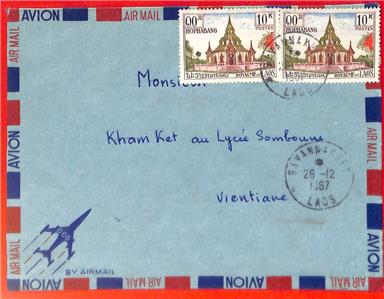 AVION AIR MAIL AVION AIR MAIL AVION AIR MAIL
00ກ 10K
HOPHABANG POSTES
ROYAUME DU LAOS
00ກ 10K
HOPHABANG POSTES
ROYAUME DU LAOS
SAVANNAKHET
LAOS
Monsieur
Kham Ket au Lycée Somboune
SAVANNAKHET
26-12
1967
LAOS
Vientiane
BY AIRMAIL
AVION AIR MAIL AVION AIR MAIL AVION